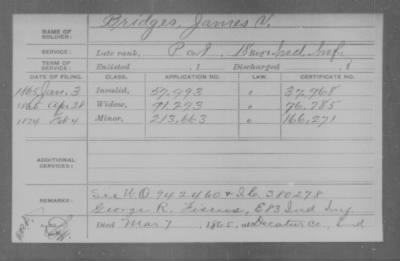 NAME OF SOLDIER: Bridges, James V.
SERVICE: Late rank, Pvt, 18 Ind. Inf.
TERM OF SERVICE: Enlisted , 1 Discharged , 1
DATE OF FILING. CLASS. APPLICATION NO. LAW. CERTIFICATE NO.
1865 Jan. 3 Invalid, 57,993 37,968
Apr. 28 Widow, 71,293 76,785
1874 Feb 4 Minor, 213,663 166,271
ADDITIONAL SERVICES:
REMARKS: See W.O. 942460 & I.C. 380278
George R. E 83 Ind Inf
Died Mar 7, 1865, at Decatur Co., Ind